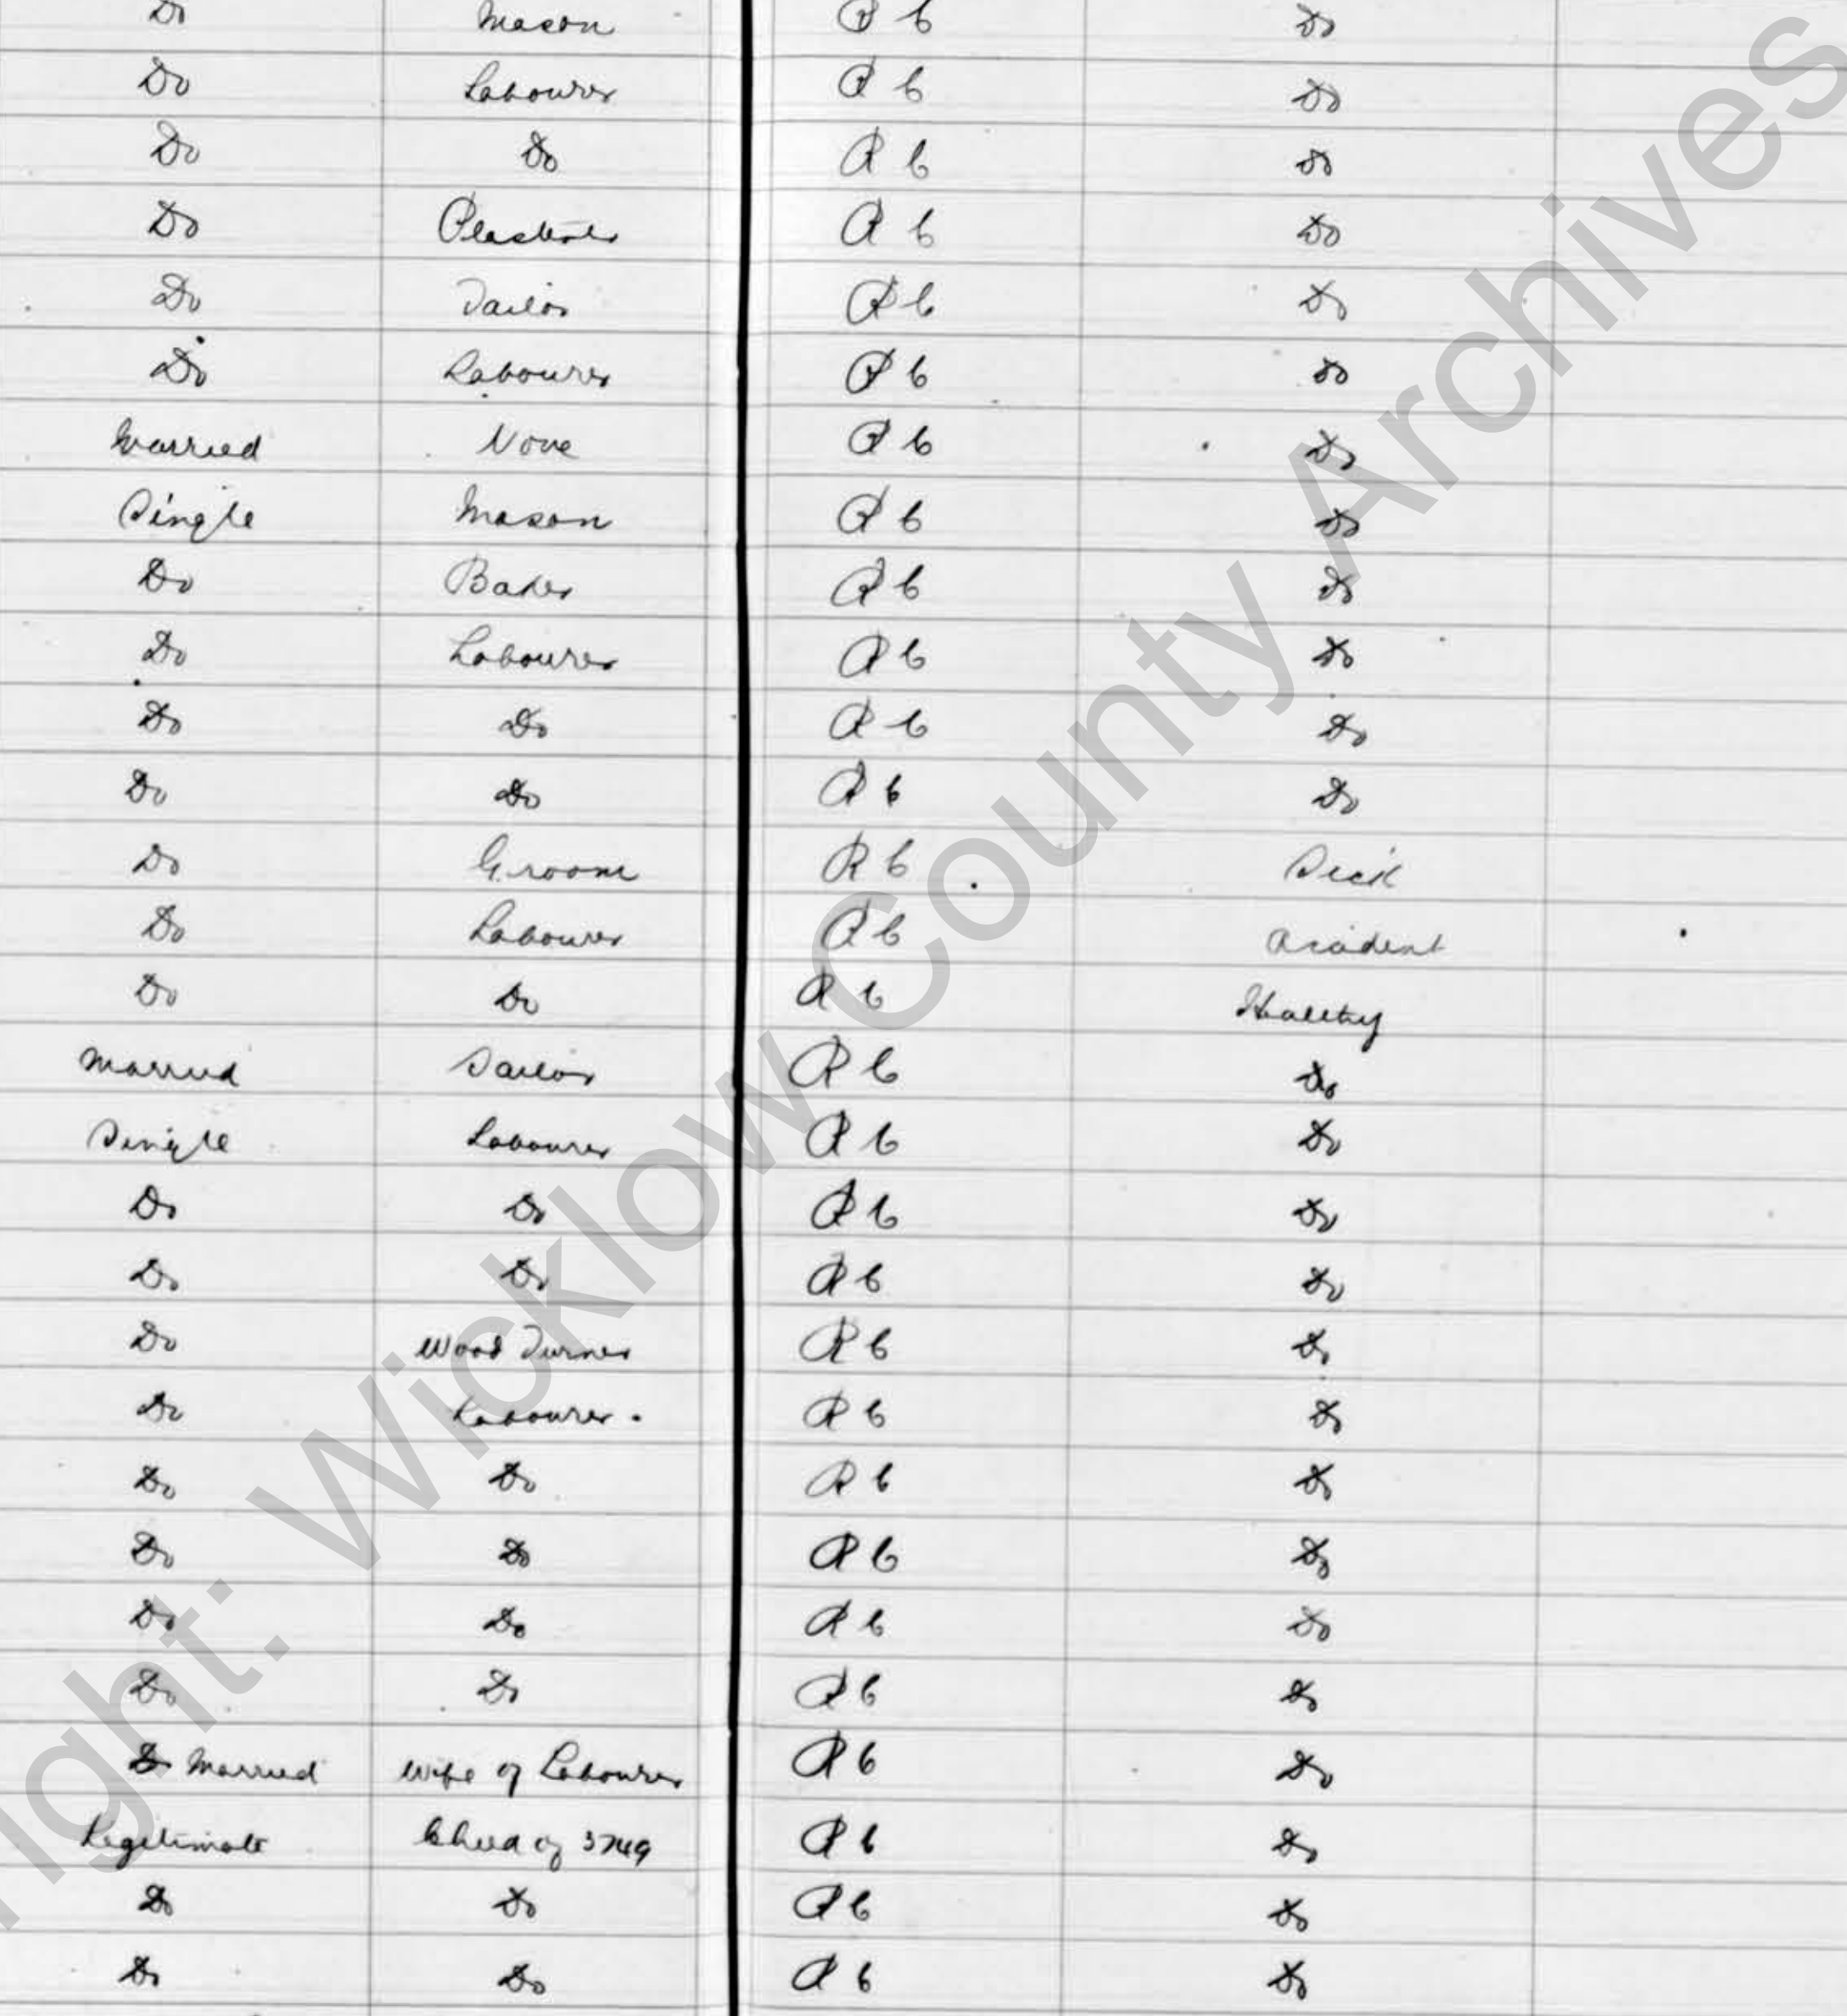 Do Mason R C Do
Do Labourer R C Do
Do Do R C Do
Do Plasterer R C Do
Do Tailor R C Do
Do Labourer R C Do
Married None R C Do
Single Mason R C Do
Do Baker R C Do
Do Labourer R C Do
Do Do R C Do
Do Do R C Do
Do Groom R C Sick
Do Labourer R C Accident
Do Do R C Healthy
Married Sailor R C Do
Single Labourer R C Do
Do Do R C Do
Do Do R C Do
Do Wood Turner R C Do
Do Labourer . R C Do
Do Do R C Do
Do Do R C Do
Do Do R C Do
Do Do R C Do
Do Married Wife of Labourer R C Do
Legitimate Child of 3749 R C Do
Do Do R C Do
Do Do R C Do
ight: Wicklow County Archives